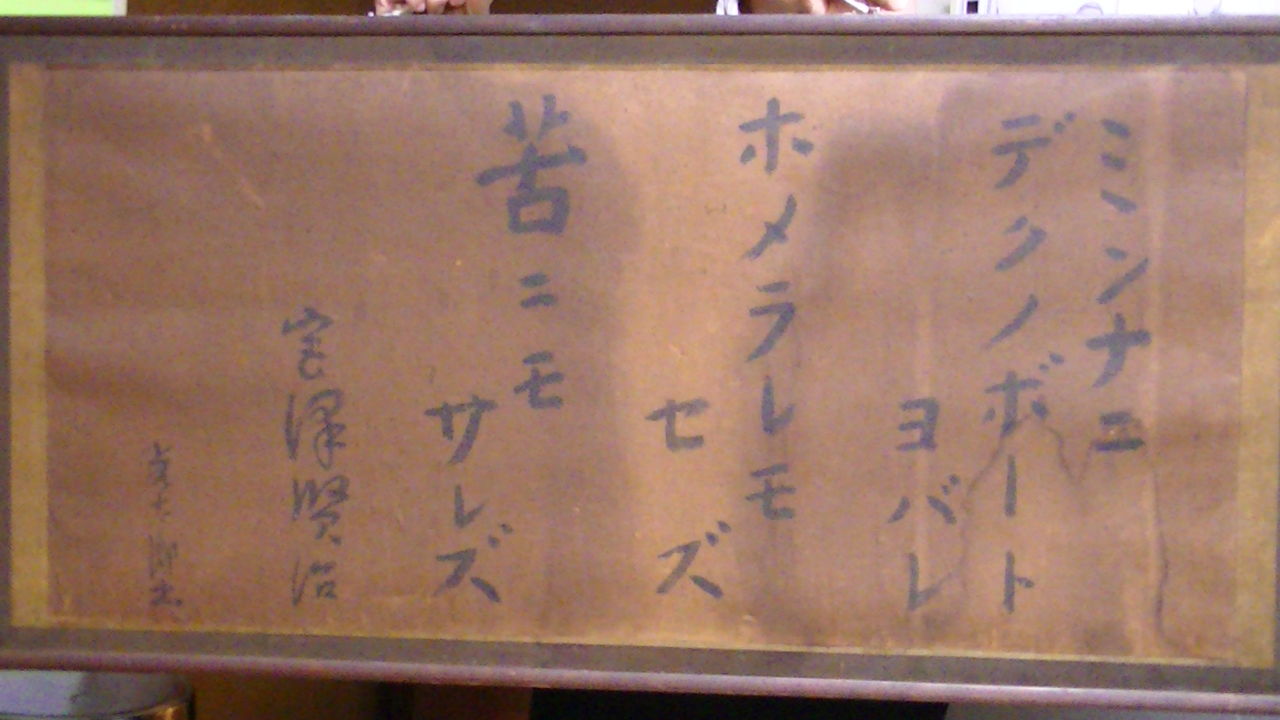 ミンナニ
デクノボート
ヨバレ
ホメラレモ
セズ
苦ニモ
サレズ
宮澤賢治